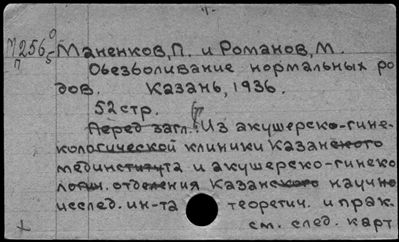 М256-5
п
Маненков, П. и Романов, М.
Обезболивание нормальных ро
дов. Казань, 1936.
52 стр.
Перед загл.: Из акушерско-гине-
кологической клиники Казанского
мединститута и акушерско-гинеко
логич. отделения Казанского научно
исслед. ин-та теоретич. и прак.
см. след. карт